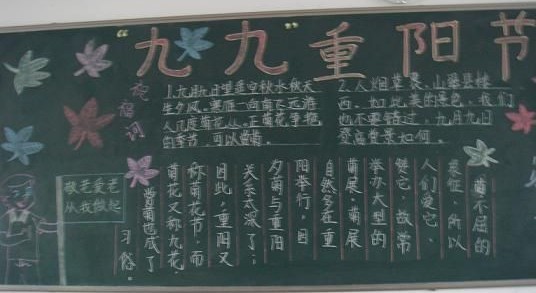 “九九重阳节
祝福词
1.九月九日望遥空,秋水秋天
生夕风。寒雁一向南飞远,游
人几度菊花丛。正菊花争艳
的季节,可以赏菊。
2.人烟
如此美的景色,我们
也不要错过,九月九日
登高赏景如何。
菊不屈的
象征,所以
人们爱它、
赞它,故常
举办大型的
菊展,菊展
自然多在重
阳举行,因
为菊与重阳
关系太深了;
因此,重阳又
称菊花节,而
菊花又称九花。
赏菊也成了
习俗。
敬老爱老
从我做起